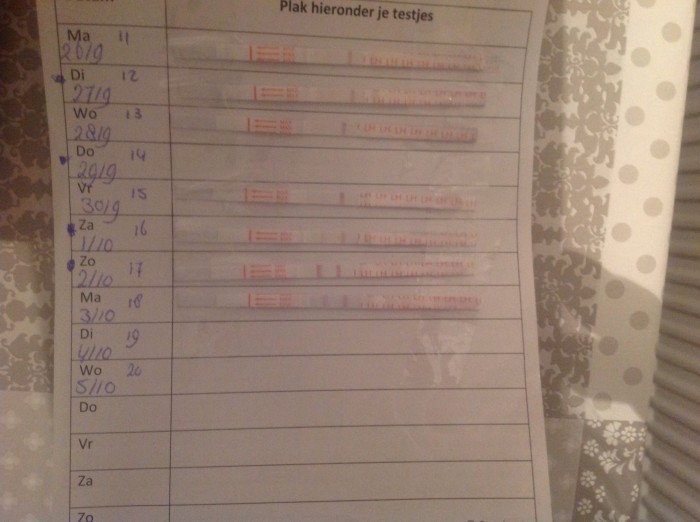 Plak hieronder je testjes
Ma 11
26/9
Di 12
27/9
Wo 13
28/9
Do 14
29/9
Vr 15
30/9
Za 16
1/10
Zo 17
2/10
Ma 18
3/10
Di 19
4/10
Wo 20
5/10
Do
Vr
Za
Zo